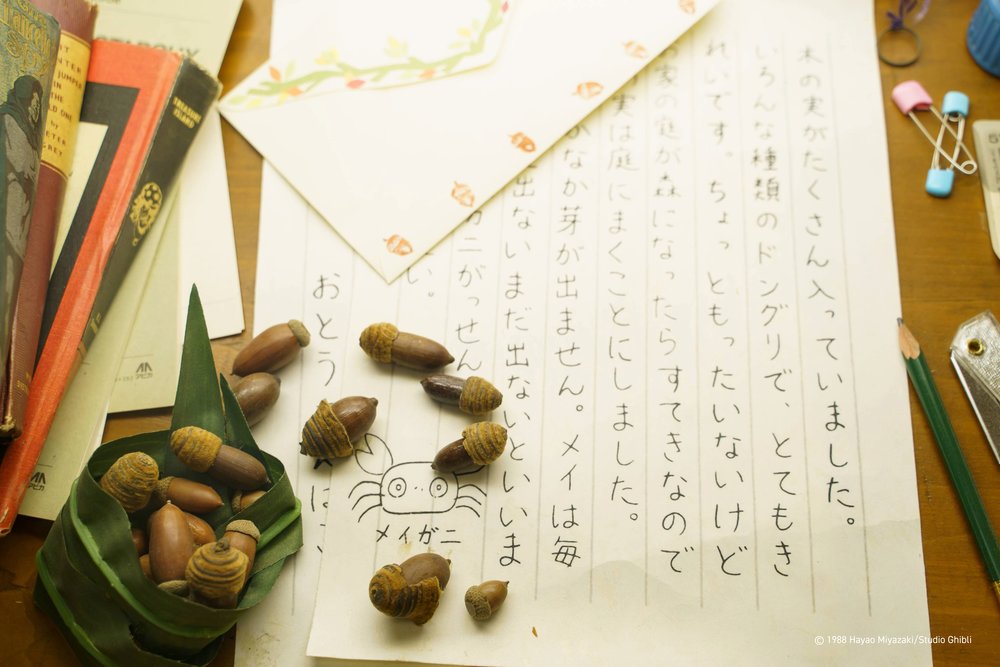 木の実がたくさん入っていました。
いろんな種類のドングリで、とてもき
れいです。ちょっともったいないけど
家の庭が森になったらすてきなので
実は庭にまくことにしました。
かなか芽が出ません。メイは毎
出ないまだ出ないといいま
カニがっせん
い。
おとう
は、
メイガニ
JUMPER
IN
THE
ONE
by
TREASURE
ISLAND
アピカ
アピカ
© 1988 Hayao Miyazaki/Studio Ghibli